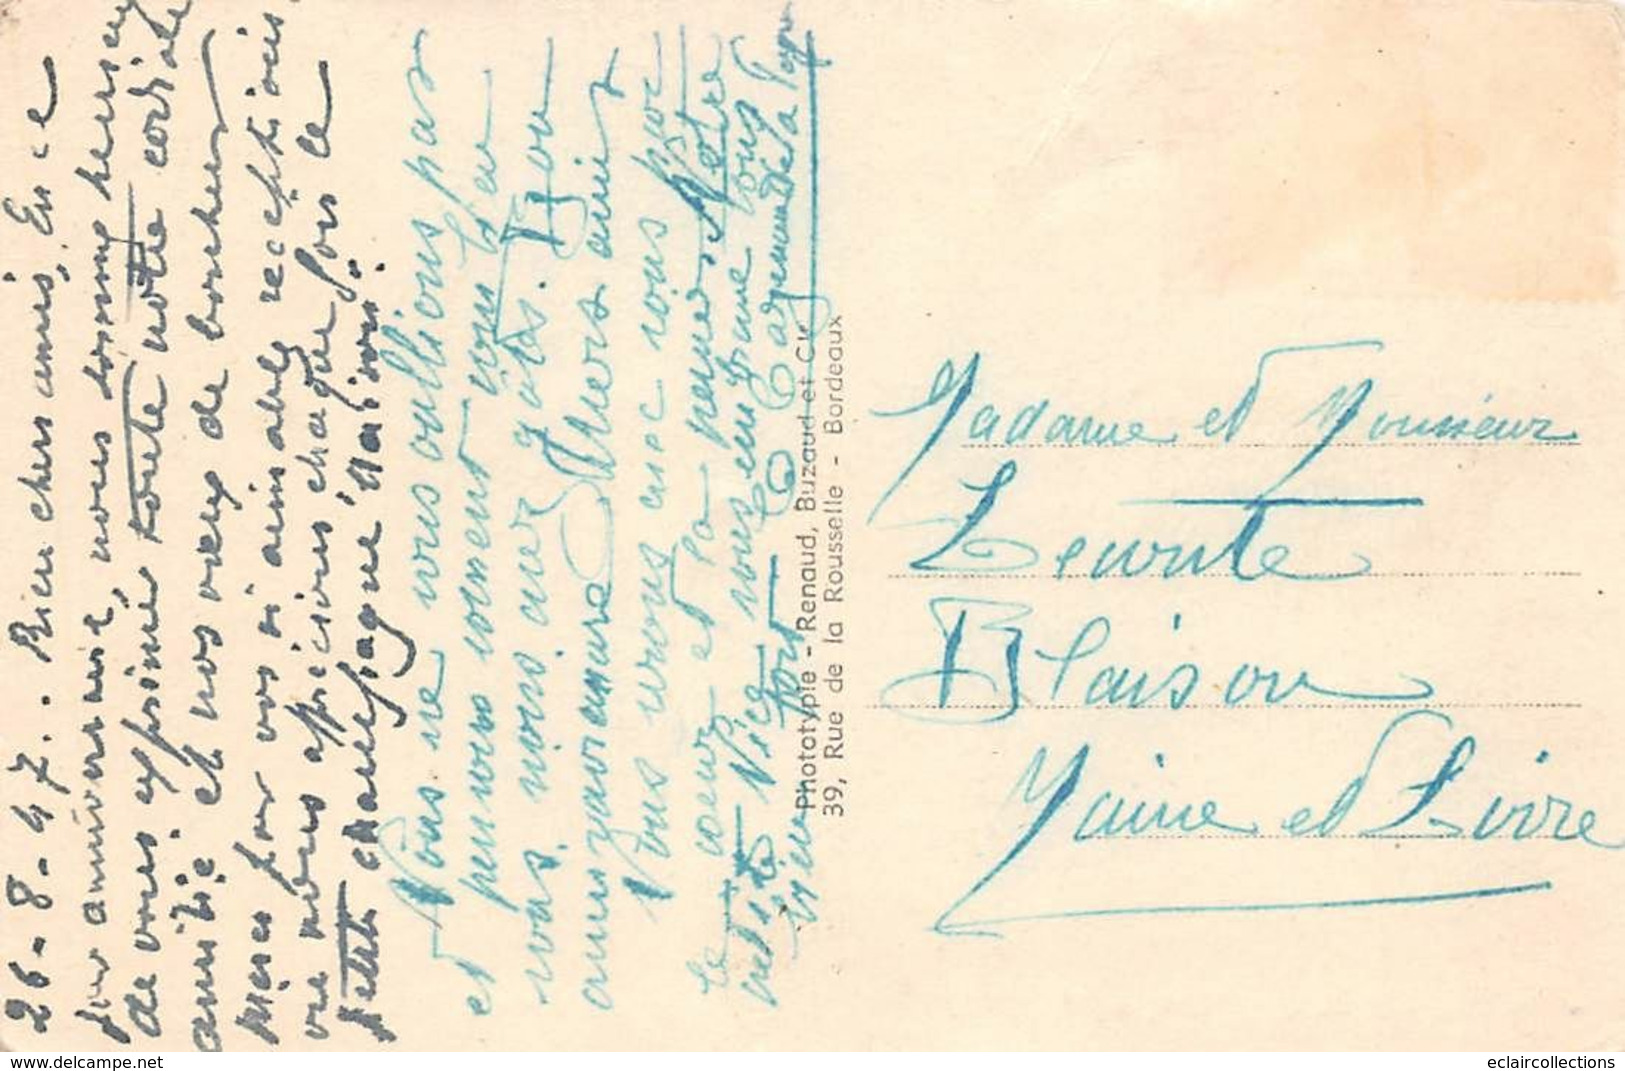 26-8-47. Bien chers amis, En ce
jour anniversaire, nous sommes heureux
de vous exprimer toute notre cordiale
amitié et nos vœux de bonheur
Merci pour vos si aimables réceptions
que nous apprécions chaque fois le
petit champagne Maison.
Nous ne vous oublions pas
et pensons souvent combien
vous nous avez gâtés. Bon
anniversaire chers amis
Nous vous avec vous par
le cœur et la pensée. Notre
petite vous embrasse tous
bien fort
Phototypie - Renaud, Buzaud et Cie
39, Rue de la Rousselle - Bordeaux
Madame et Monsieur
Lecomte
Blaison
Maine et Loire
www.delcampe.net
eclaircollections